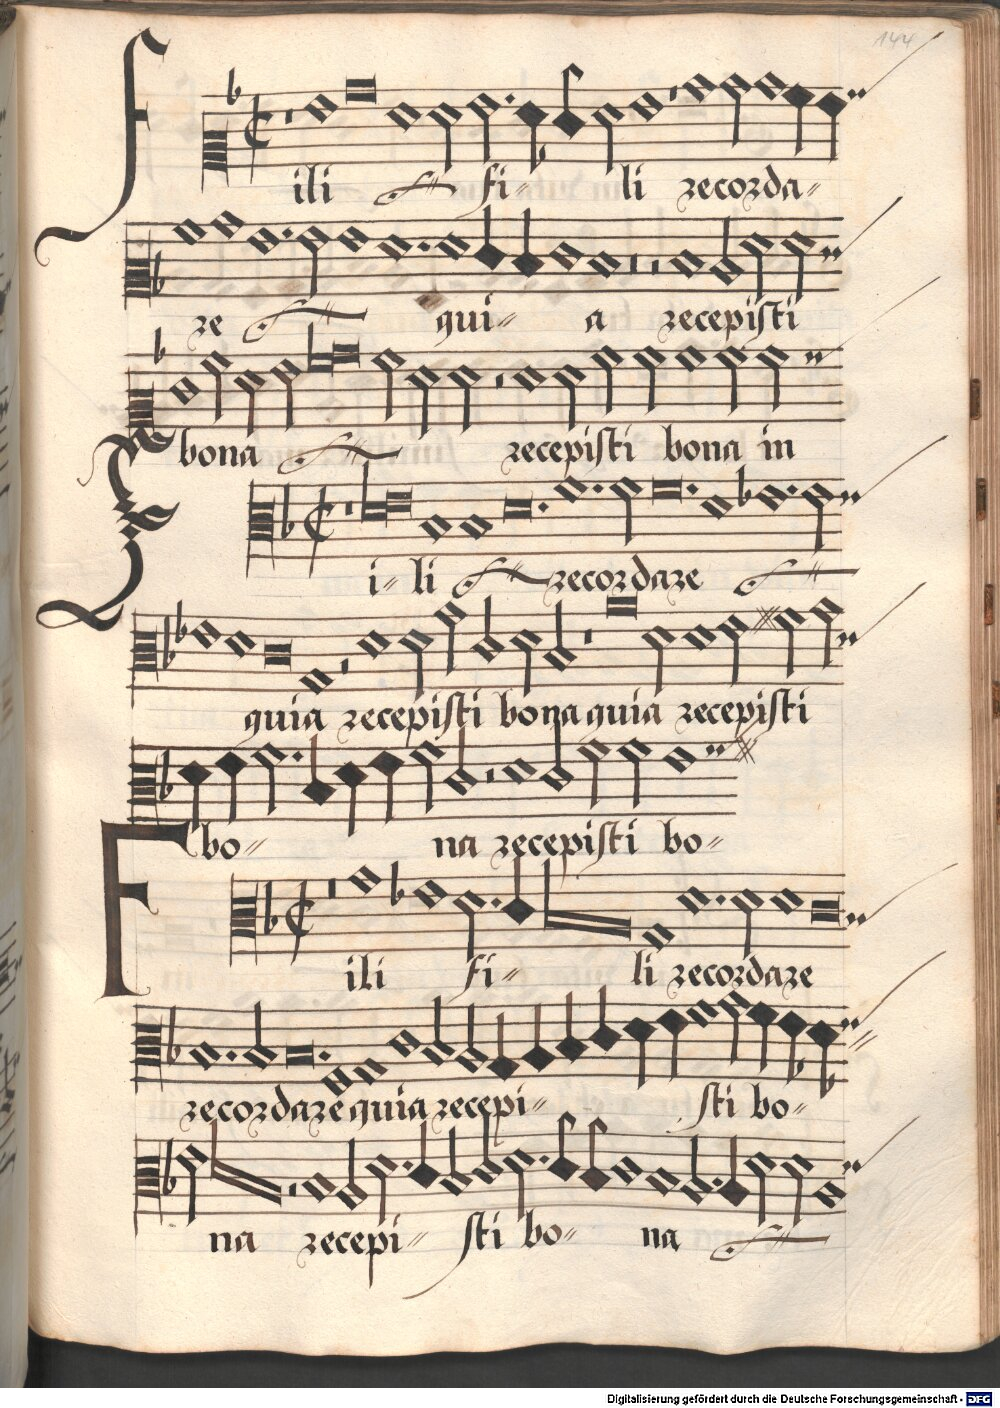 144
Fili fi- li recorda-
re qui- a recepisti
bona recepisti bona in
Fi-li recordare
quia recepisti bona quia recepisti
bo- na recepisti bo-
Fili fi- li recordare
recordare quia recepi- sti bo-
na recepi- sti bo- na
Digitalisierung gefördert durch die Deutsche Forschungsgemeinschaft - DFG